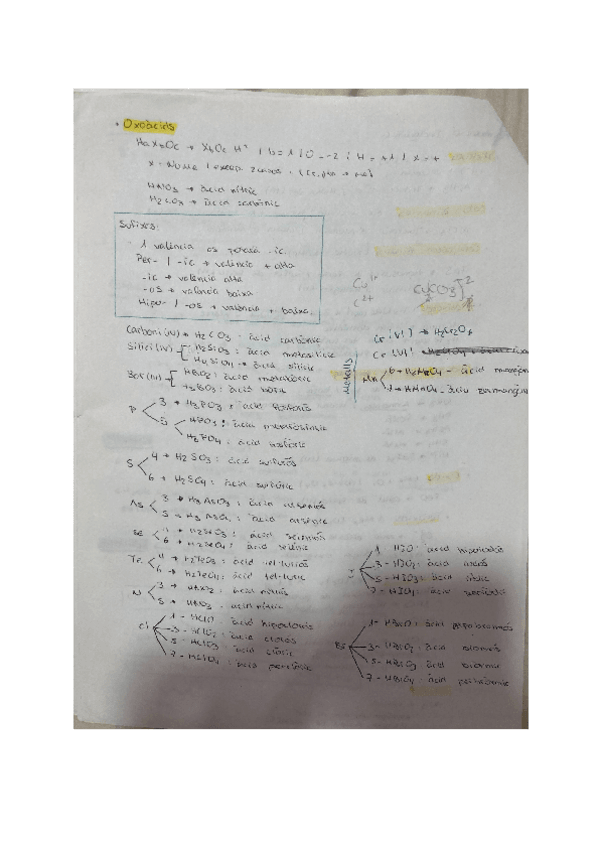 • Oxoàcids
HaXbOc → XbOc H⁺ / b=1 / O=-2 / H=+1 / x=+
HNO3 → àcid nítric
H2CO3 → àcid carbònic
Sufixes:
1 valència os posarà -ic.
Per- / -ic → valència + alta
-ic → valència alta
-os → valència baixa
Hipo- / -os → valència + baixa.
CuCO3
Carboni (IV) → H2CO3: àcid carbònic
Silici (IV) H2SiO3: àcid metasilícic
H4SiO4 → àcid silícic
Bor (III) HBO2: àcid metabòric
H3BO3: àcid bòric
Metalls
Cr (VI) → H2Cr2O7
Cr (VI)
Mn 6 → H2MnO4 - àcid
7 → HMnO4 - àcid
P 3 → H3PO3: àcid fosforós
5 HPO3: àcid metafosfòric
H3PO4: àcid fosfòric
S 4 → H2SO3: àcid sulfurós
6 → H2SO4: àcid sulfúric
As 3 → H3AsO3: àcid arseniós
5 → H3AsO4: àcid arsènic
Se 4 → H2SeO3: àcid seleniós
6 → H2SeO4: àcid selènic
Te 4 → H2TeO3: àcid tel·luriós
6 → H2TeO4: àcid tel·lúric
N 3 → HNO2: àcid nitrós
5 → HNO3: àcid nítric
Cl 1 - HClO: àcid hipoclorós
3 - HClO2: àcid clorós
5 - HClO3: àcid clòric
7 - HClO4: àcid perclòric
I 1 - HIO: àcid hipoiodós
3 - HIO2: àcid iodós
5 - HIO3: àcid iòdic
7 - HIO4: àcid periòdic
Br 1 - HBrO: àcid hipobromós
3 - HBrO2: àcid bromós
5 - HBrO3: àcid bròmic
7 - HBrO4: àcid perbròmic